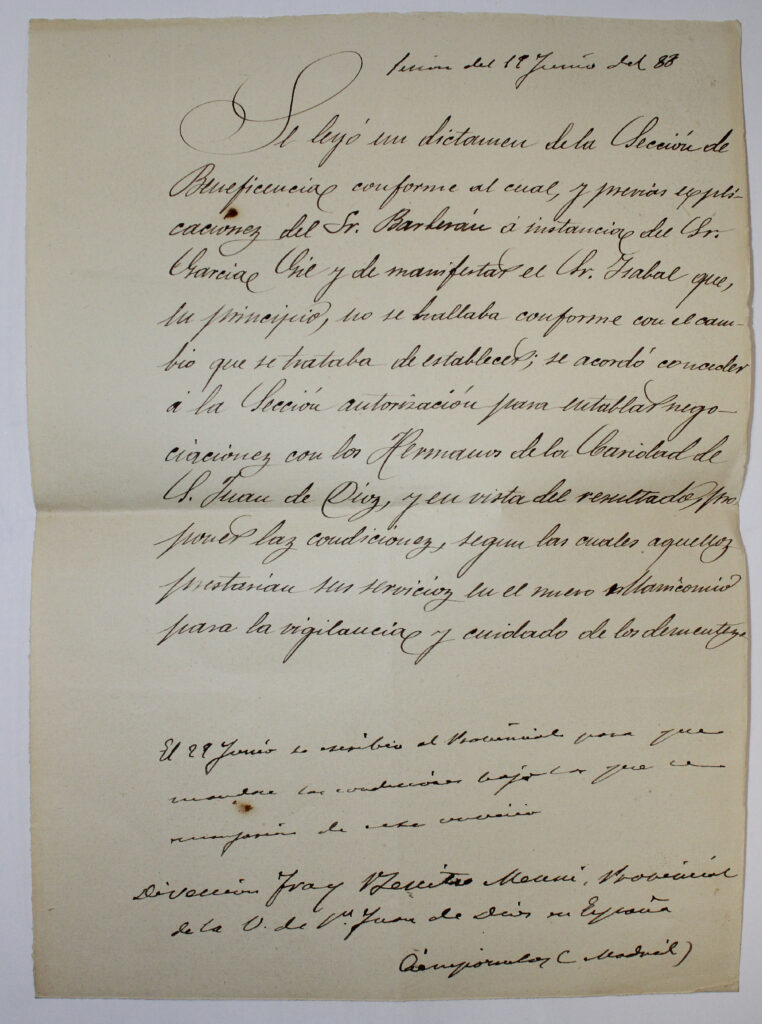 Sesion del 19 Junio del 88
Se leyó un dictamen de la Sección de
Beneficencia conforme al cual, y previas expli-
caciónez del Sr. Barberán á instancia del Sr.
Garcia Gil y de manifestar el Sr. Isabal que,
en principio, no se hallaba conforme con el cam-
bio que se trataba de establecer; se acordó conceder
á la Sección autorización para entablar nego-
ciaciónez con los Hermanos de la Caridad de
S. Juan de Dioz, y en vista del resultado, pro
poner laz condicionez, segun las cuales aquelloz
prestarian sus servicioz en el nuevo Manicomio
para la vigilancia y cuidado de los dementez
El 29 Junio se escribio al Provincial para que
mandase las condiciones bajo las que se
de este servicio
Dirección Fray Benito Menni, Provincial
de la O. de Sn Juan de Dios en España
Ciempozuelos (Madrid)